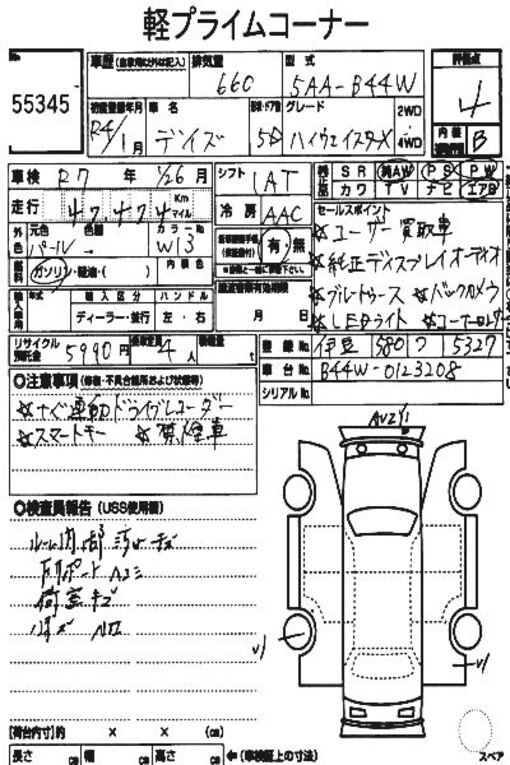 軽プライムコーナー
No.
55345
車歴 (自家用以外は記入)
排気量
660
型式
5AA-B44W
評価点
4
初度登録年月
R4/1月
車名
デイズ
形状・ドア数
5D
グレード
ハイウェイスターX
2WD
4WD
内装
B
車検 R7 年 1/26 月
走行 47,474 Km マイル
シフト IAT
冷房 AAC
純正 SR AW PS PW
カワ TV ナビ エアB
外色 元色 パール
色替
カラーNo. W13
燃料 ガソリン・軽油・( )
内装色
有・無
輸入車用 年式
輸入区分 ディーラー・並行
ハンドル 左・右
月 日
セールスポイント
☆ユーザー買取車
☆純正ディスプレイオーディオ
☆ブルートゥース ☆バックカメラ
☆LEDライト ☆コーナーセンサー
リサイクル預託金 5990円
乗車定員 4人
積載量 t
登録No. 伊豆 580 つ 5327
車台No. B44W-0123208
シリアルNo.
◎注意事項 (修復・不具合箇所および状態等)
ドライブレコーダー
☆スマートキー ☆禁煙車
◎検査員報告 (USS使用欄)
ルーム内 部 汚れ キズ
荷室キズ
AU2 Y1
V1
V1
[荷台内寸]約 × × (cm)
長さ cm 幅 cm 高さ cm ←(車検証上の寸法)
スペア